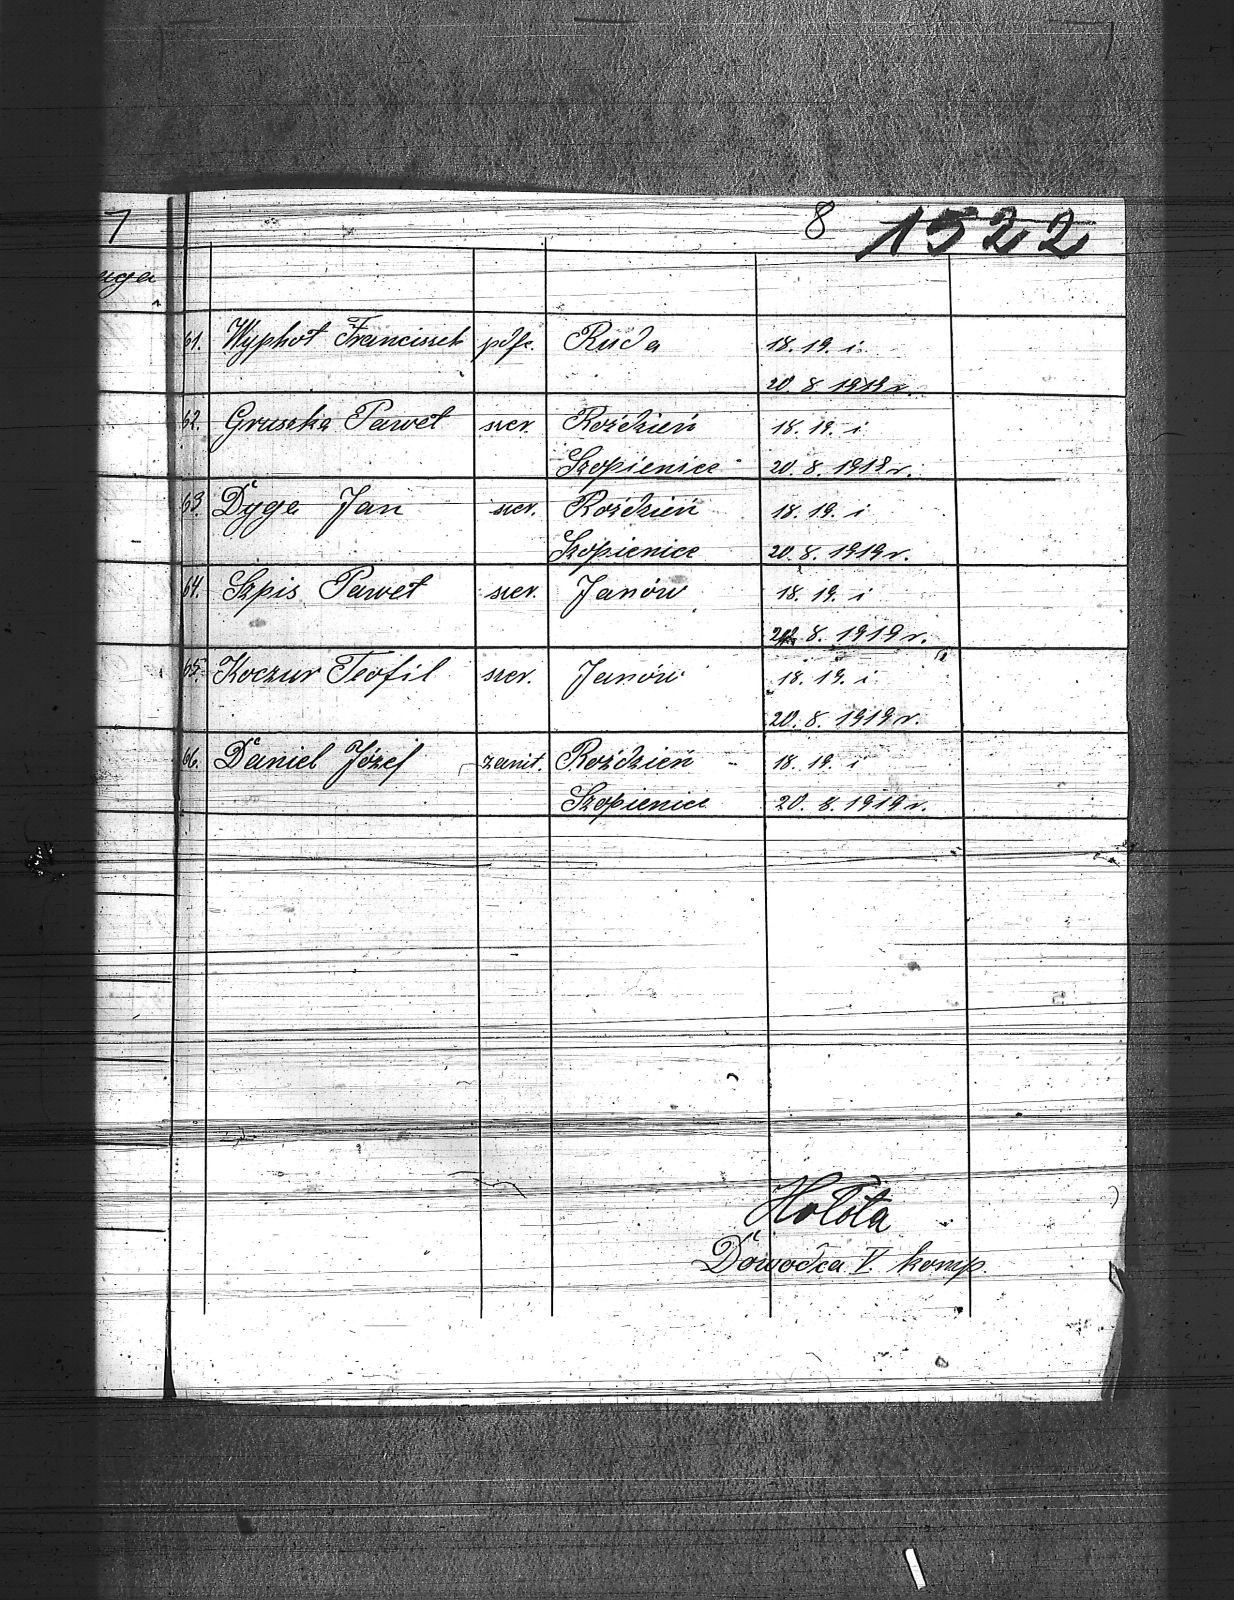 7
8 1522
uga
61. Wyphot Franciszek pdfr. Ruda 18. 19. i
20. 8. 1919 r.
62. Gruszka Paweł szer. Roździeń 18. 19. i
Szopienice 20. 8. 1919 r.
63. Dyga Jan szer. Roździeń 18. 19. i
Szopienice 20. 8. 1919 r.
64. Szpis Paweł szer. Janów 18. 19. i
20. 8. 1919 r.
65. Koczur Teofil szer. Janów 18. 19. i
20. 8. 1919 r.
66. Daniel Józef zanit. Roździeń 18. 19. i
Szopienice 20. 8. 1919 r.
Hołota
Dowódca V. komp.